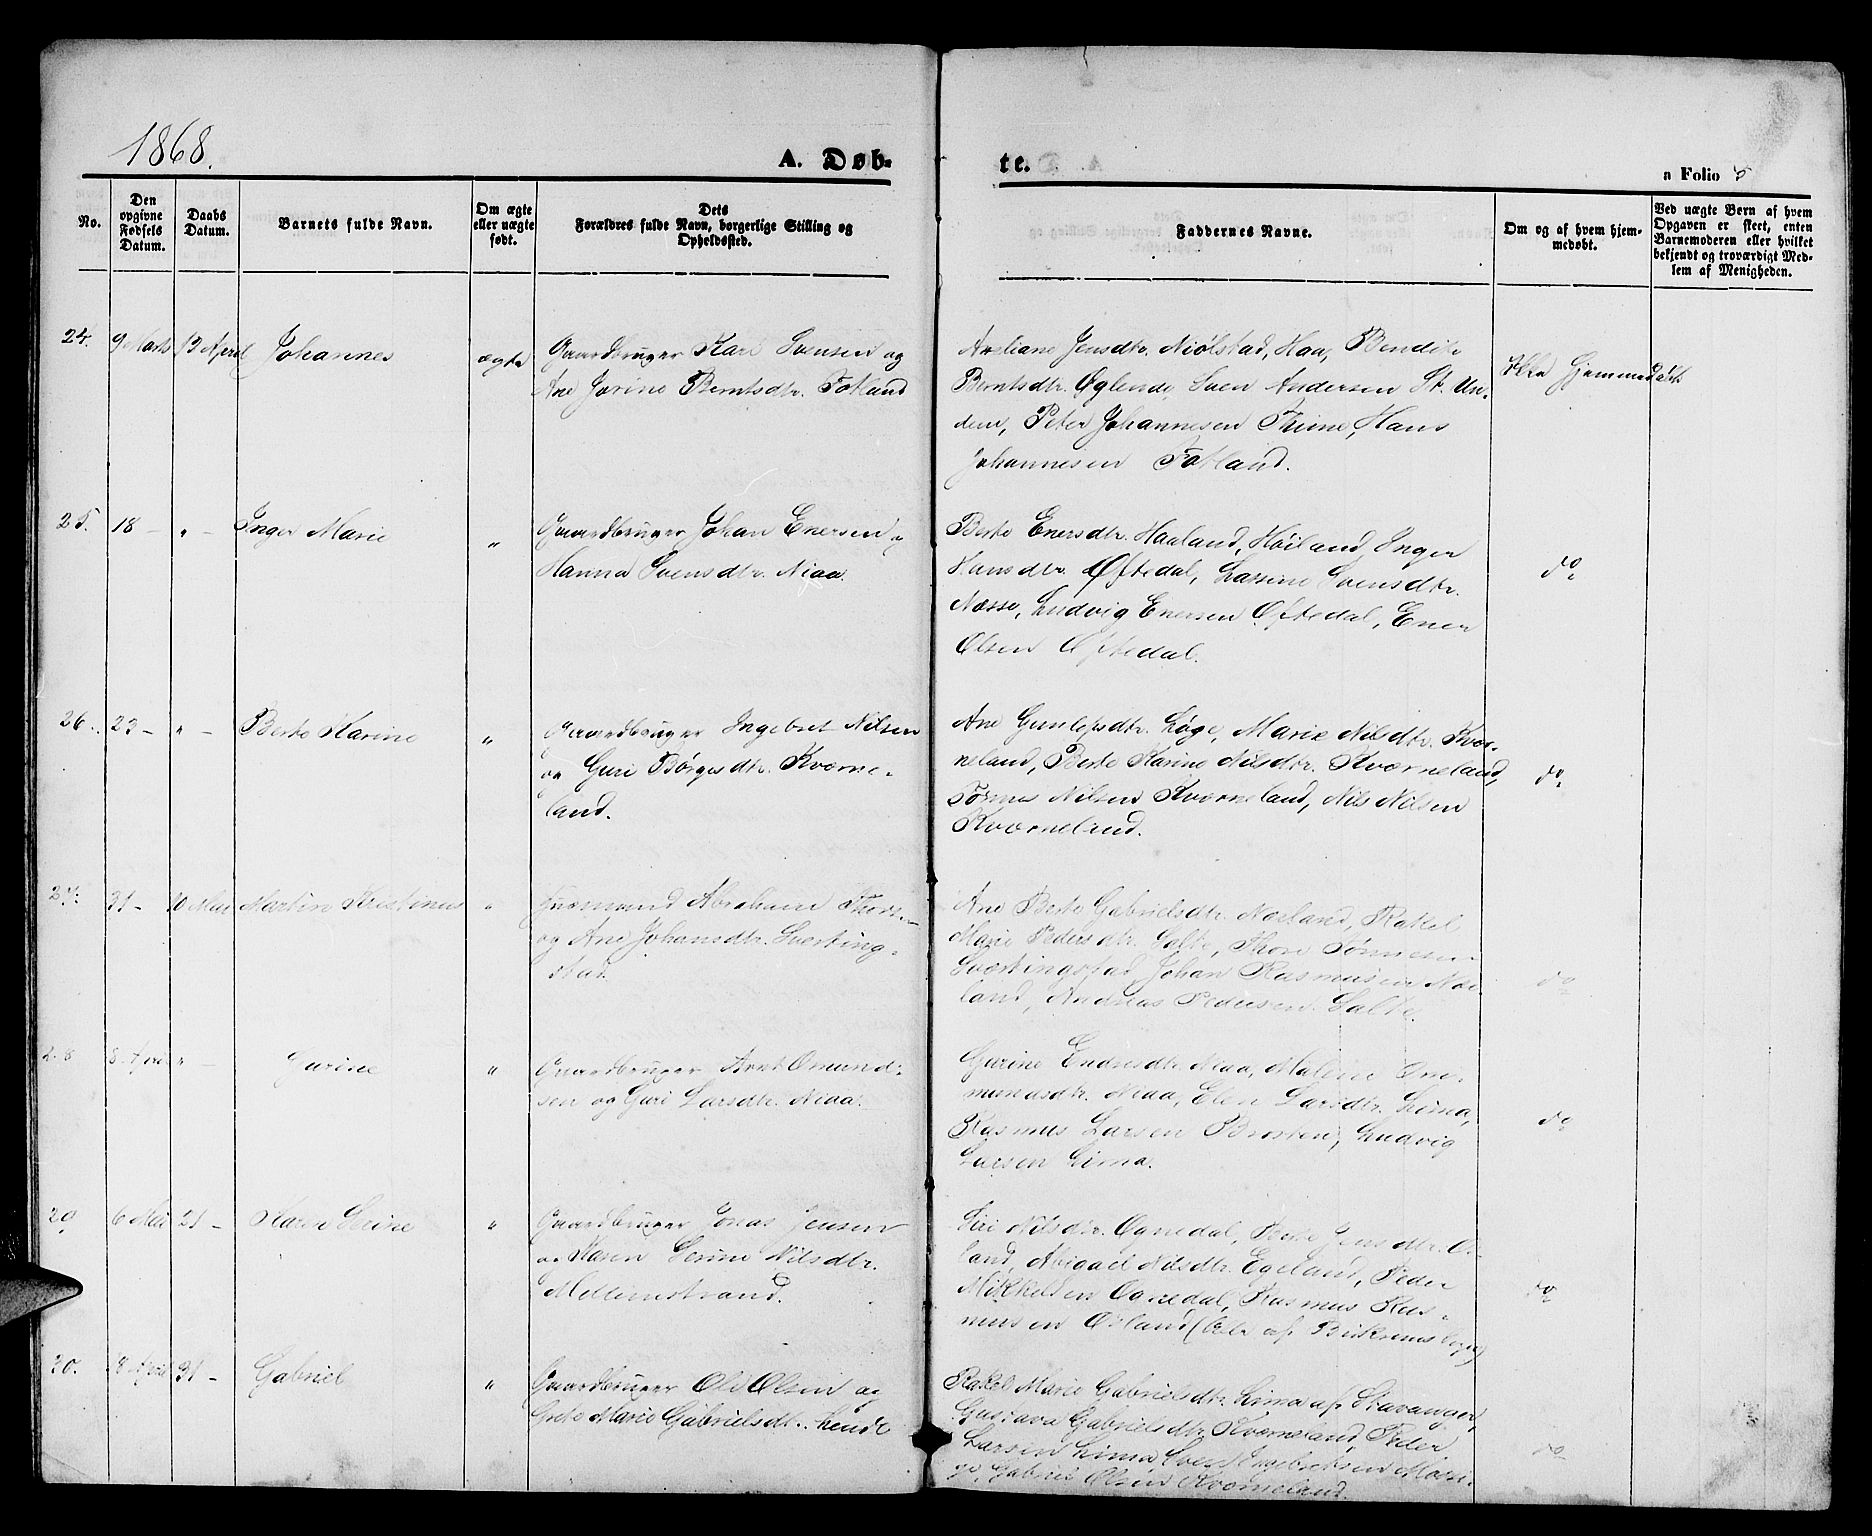 1868.
A. Døb-
te.
a Folio 5
No.
Den
opgivne
Fødsels
Datum.
Daabs
Datum.
Barnets fulde Navn.
Om ægte
eller uægte
født.
Dets
Forældres fulde Navn, borgerlige Stilling og
Opholdssted.
Faddernes Navne.
Om og af hvem hjem-
medøbt.
Ved uægte Børn af hvem
Opgaven er skeet, enten
Barnemoderen eller hvilket
bekjendt og troværdigt Med-
lem af Menigheden.
24. 9 Marts 13 April Johannes ægte
Gaardbruger Kari Svensen og
Ane Jorine Berntsdtr. Fotland
Axeliane Jensdtr. Niølstad, Haa, Bendik
Berntsdtr. Øglende, Sven Andersen St. Un-
dem, Peter Johannesen Thime, Hans
Johannesen Fotland.
Ikke Hjemmedøbt
25. 18 - " - Inger Marie "
Gaardbruger Johan Enersen og
Hanna Svensdtr. Niaa.
Berte Enersdtr. Haaland, Høiland, Inger
Hansdtr. Øftedal, Lassine Svensdtr.
Næsse, Ludvig Enersen Øftedal, Ener
Olsen Øftedal.
do
26. 23 - " - Berte Karine "
Gaardbruger Ingebret Nilsen
og Guri Børgesdtr. Kværne-
land.
Ane Gunlefsdtr. Løge, Marie Nilsdtr. Kvær-
neland, Berte Karine Nilsdtr. Kværneland,
Tønnes Nilsen Kværneland, Nils Nilsen
Kværneland.
do
27. 31 - 10 Mai Martin Kristinus "
Huusmand Abraham Thors-
og Ane Johansdtr. Sværting-
stad.
Ane Berte Gabrielsdtr. Nærland, Rakel
Marie Pedersdtr. Salte, Thore Tønnesen
Sværtingstad, Johan Rasmusen Nær-
land, Andreas Pedersen Salte.
do
28 8 April " - Gurine "
Gaardbruger Arnt Omund-
sen og Guri Larsdtr. Niaa.
Gurine Endresdtr. Niaa, Malene Om-
mundsdtr. Niaa, Elen Larsdtr. Lima,
Rasmus Larsen Brosten, Ludvig
Larsen Lima.
do
29 6 Mai 21 - Karen Serine "
Gaardbruger Jonas Jensen
og Karen Serine Nilsdtr.
Mellemstrand.
Siri Nilsdtr. Ognedal, Berte Jensdtr. O-
land, Abigael Nilsdtr. Egeland, Peder
Mikkelsen Ognedal, Rasmus Ras-
musen Ørland (Alle af Birkrems Sogn)
do
30. 18 April 31 - Gabriel "
Gaardbruger Ole Olsen og
Grete Marie Gabrielsdtr. Lende
Rakel Marie Gabrielsdtr. Lima af Stavanger,
Gustava Gabrielsdtr. Kværneland, Peder
Larsen Lima, Sven Ingebretsen Mossi-
ge, Gabriel Olsen Kværneland.
do